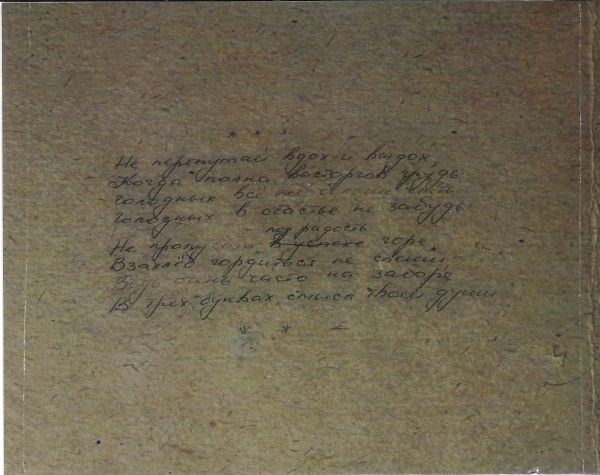 * * *
Не перепутай вдох и выдох,
Когда полна восторгов грудь
голодных всё же
Голодных в счастье не забудь
под радость
Не пропусти в успехе горе,
Взахлёб гордиться не спеши –
часто на заборе
В трёх буквах смысл твоей души
* * *